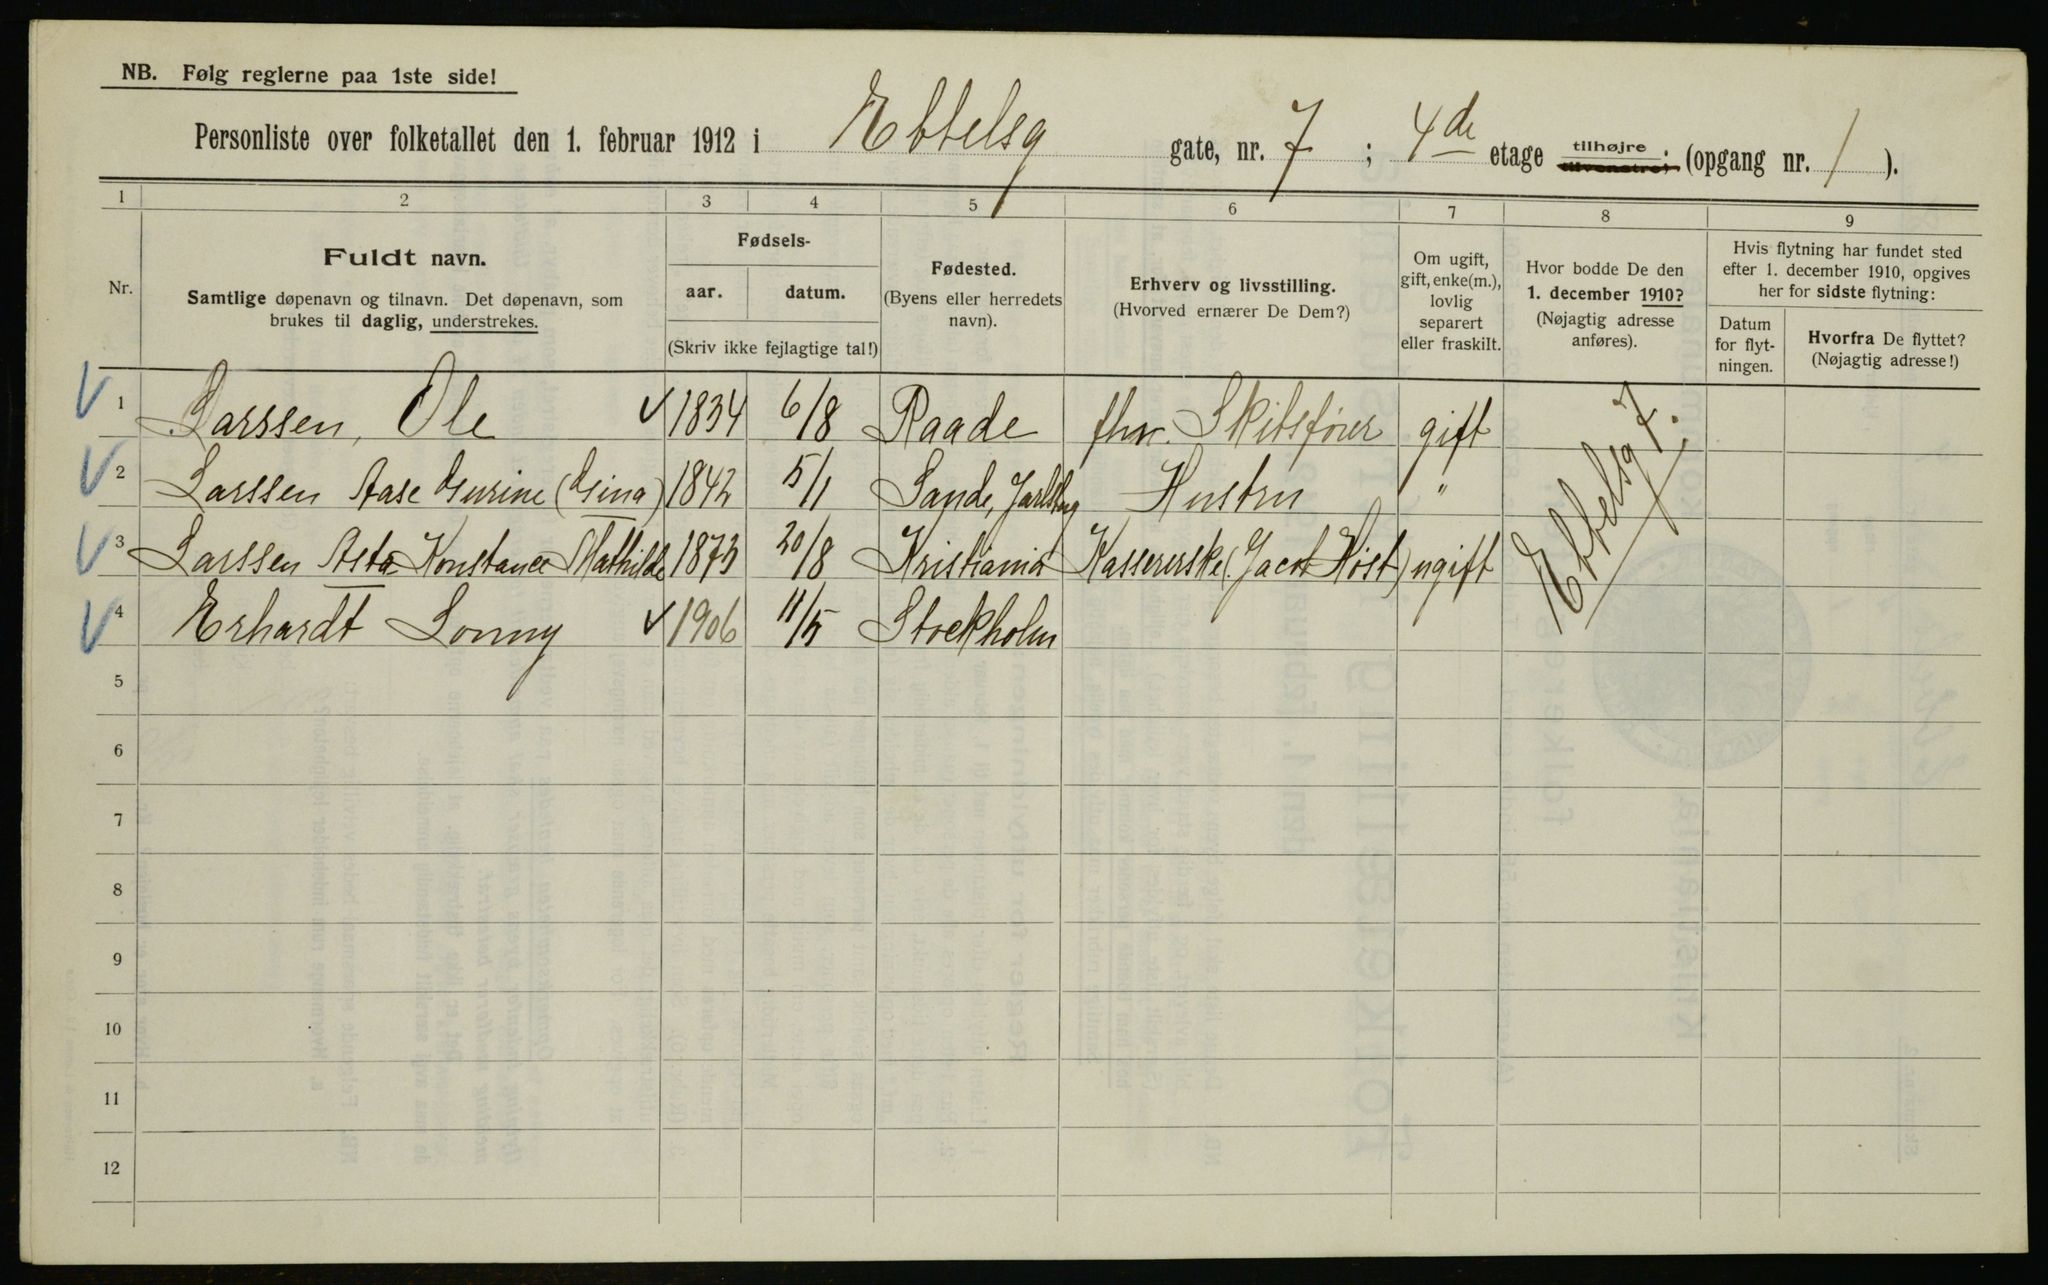 NB. Følg reglerne paa 1ste side!
Personliste over folketallet den 1. februar 1912 i Ebbelsg gate, nr. 7 ; 4de etage tilhøjre tilvenstre; (opgang nr. 1 ).
1 2 3 4 5 6 7 8 9
Nr.
Fuldt navn.
Samtlige døpenavn og tilnavn. Det døpenavn, som
brukes til daglig, understrekes.
Fødsels-
aar. datum.
(Skriv ikke fejlagtige tal!)
Fødested.
(Byens eller herredets
navn).
Erhverv og livsstilling.
(Hvorved ernærer De Dem?)
Om ugift,
gift, enke(m.),
lovlig
separert
eller fraskilt.
Hvor bodde De den
1. december 1910?
(Nøjagtig adresse
anføres).
Hvis flytning har fundet sted
efter 1. december 1910, opgives
her for sidste flytning:
Datum
for flyt-
ningen.
Hvorfra De flyttet?
(Nøjagtig adresse!)
1 Larssen, Ole 1834 6/8 Raade fhv. Skibsfører gift Ebbelsg 7.
2 Larssen Aase Gurine (Gina) 1842 5/1 Sande, Jarlsberg Hustru "
3 Larssen Asta Konstance Mathilde 1873 20/8 Kristiania Kassererske (Jacob Høst) ugift
4 Erhardt Sonny 1906 11/5 Stockholm
5
6
7
8
9
10
11
12